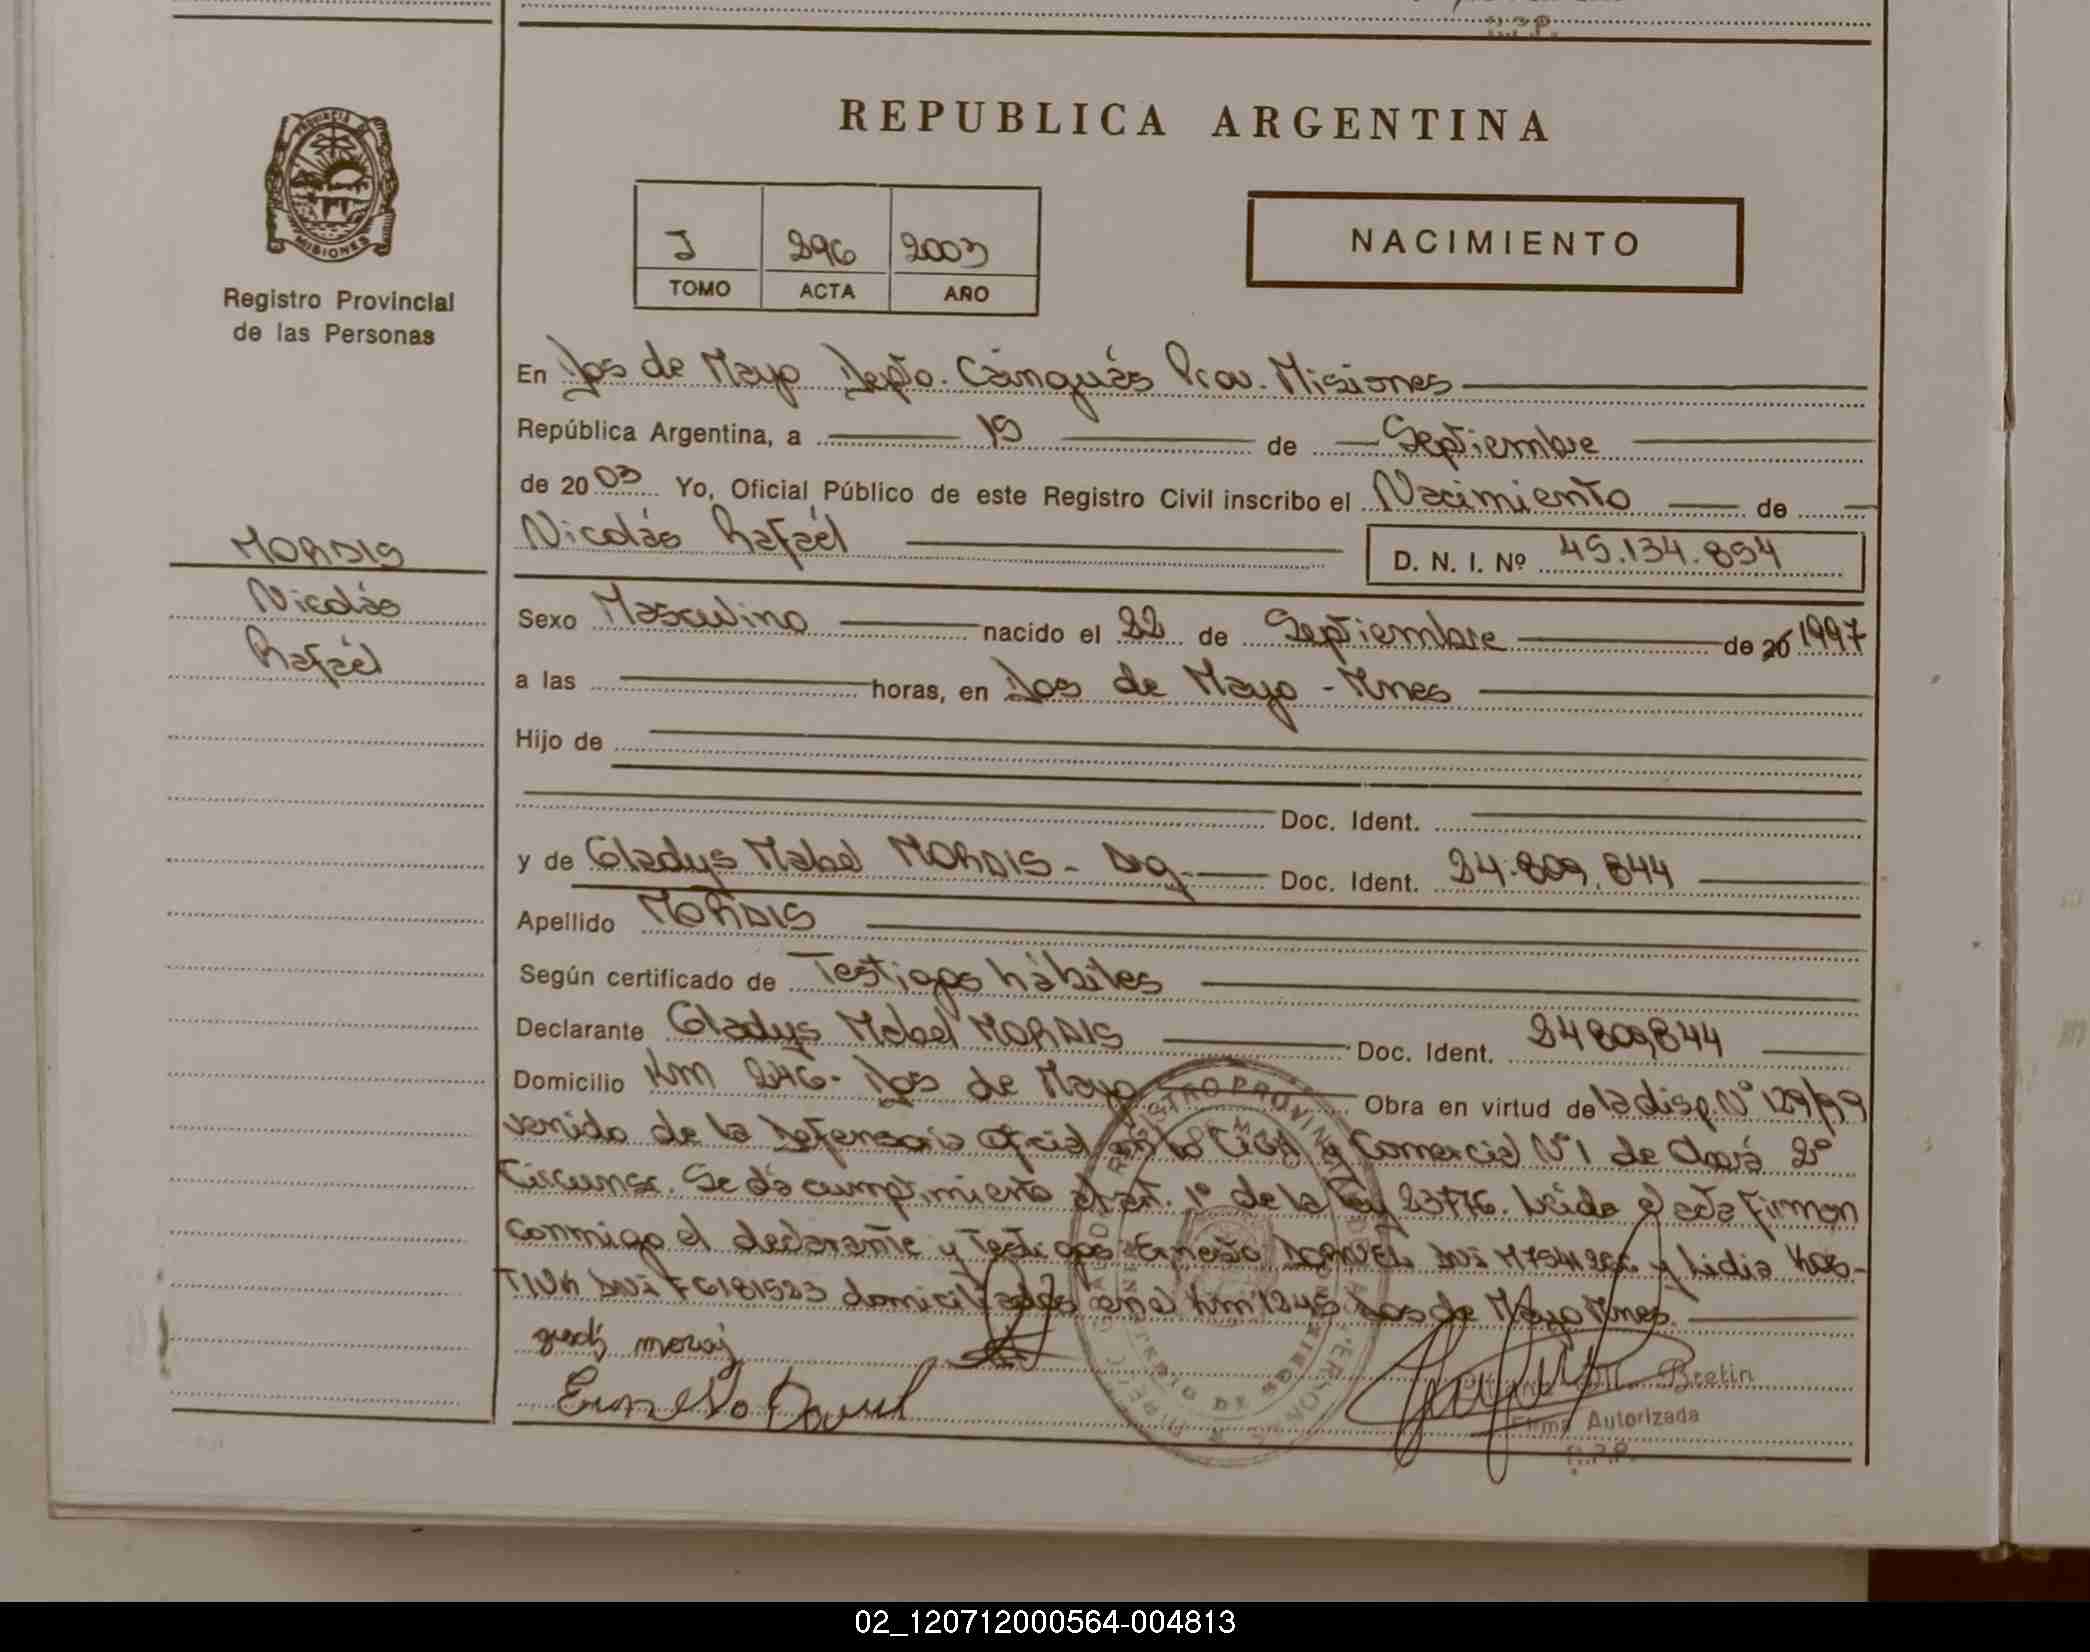 REPUBLICA ARGENTINA
PROVINCIA DE
MISIONES
Registro Provincial
de las Personas
296 2003
TOMO ACTA AÑO
NACIMIENTO
En Dos de Mayo Depto. Cainguás Prov. Misiones
República Argentina, a 19 de Septiembre
de 2003 Yo, Oficial Público de este Registro Civil inscribo el Nacimiento de
Nicolás Rafaél D. N. I. Nº 45.134.854
MORAIS
Nicolás
Rafaél
Sexo Masculino nacido el 22 de Septiembre de 20 1997
a las horas, en Dos de Mayo - Mnes
Hijo de
Doc. Ident.
y de Gladys Mabel MORAIS - Arg. Doc. Ident. 24.809.844
Apellido MORAIS
Según certificado de Testigos hábiles
Declarante Gladys Mabel MORAIS Doc. Ident. 24809844
Domicilio Km 246 - Dos de Mayo Obra en virtud de la disp. Nº 129/99
venido de la Defensoria oficial en lo Civil y Comercial Nº 1 de Oberá 2º
Circunsc. Se dá cumplimiento al art. 1º de la ley 23776. Leida el acta firman
conmigo el declarante y Testigos Ernesto DNI y Lidia KOS-
TIUK DNI F6181523 domiciliados en el Km 1245 Dos de Mayo Mnes.
Ernesto
Bretin
Firma Autorizada
R.P.P.
02_120712000564-004813